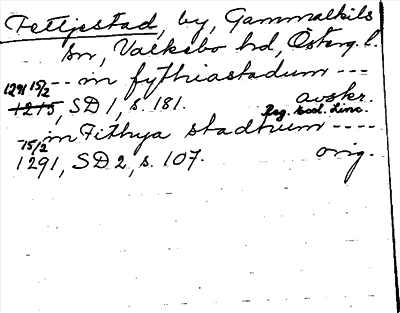 Fettjestad, by, Gammalkils
sn, Valkebo hd, Österg. l.
1291 15/2 -- in fythiastadum ---
1215, SD 1, s. 181. avskr.
Reg. Eccl. Linc.
15/2 in Fithya stadhum ----
1291, SD 2, s. 107. orig.